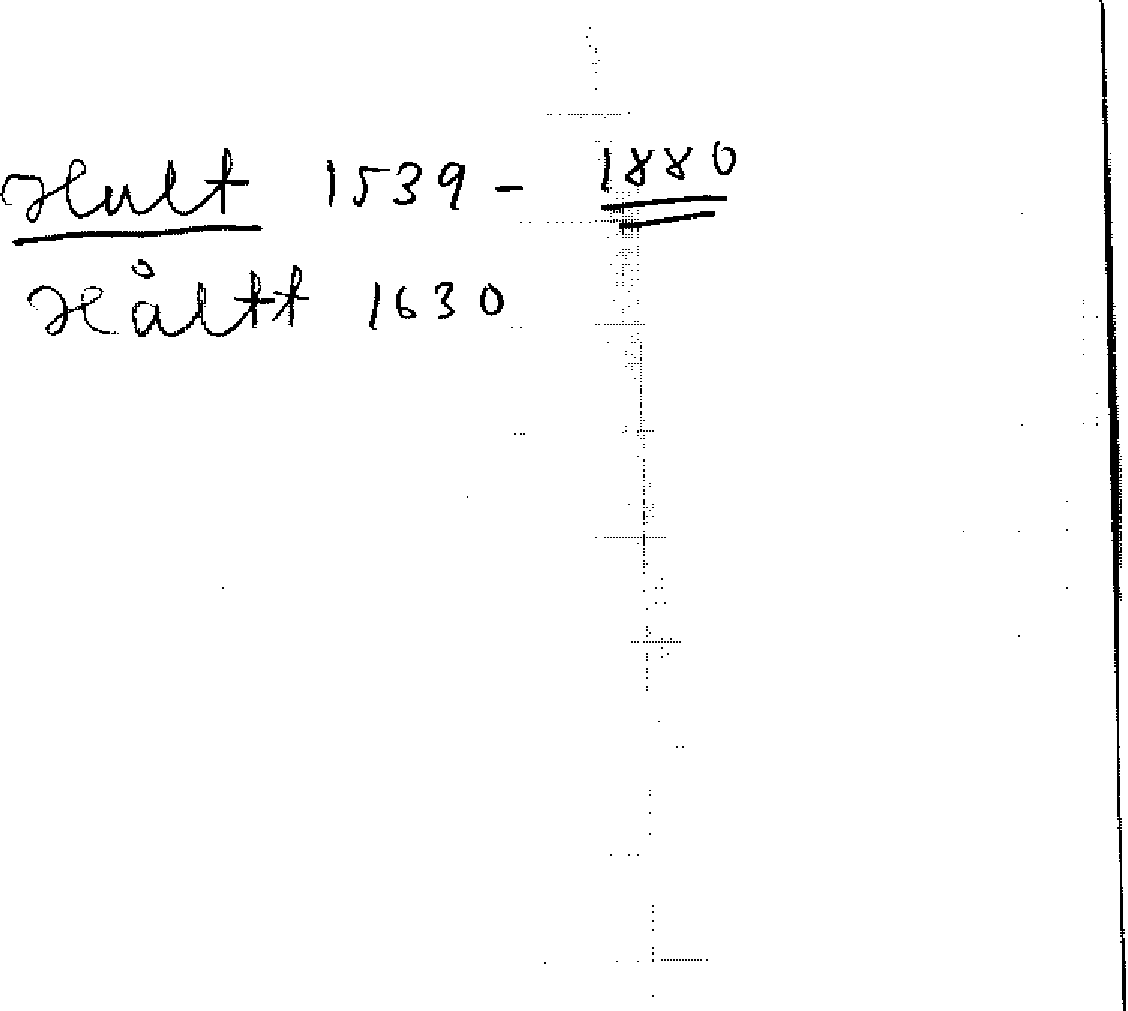 Hult 1539 - 1880
Håltt 1630